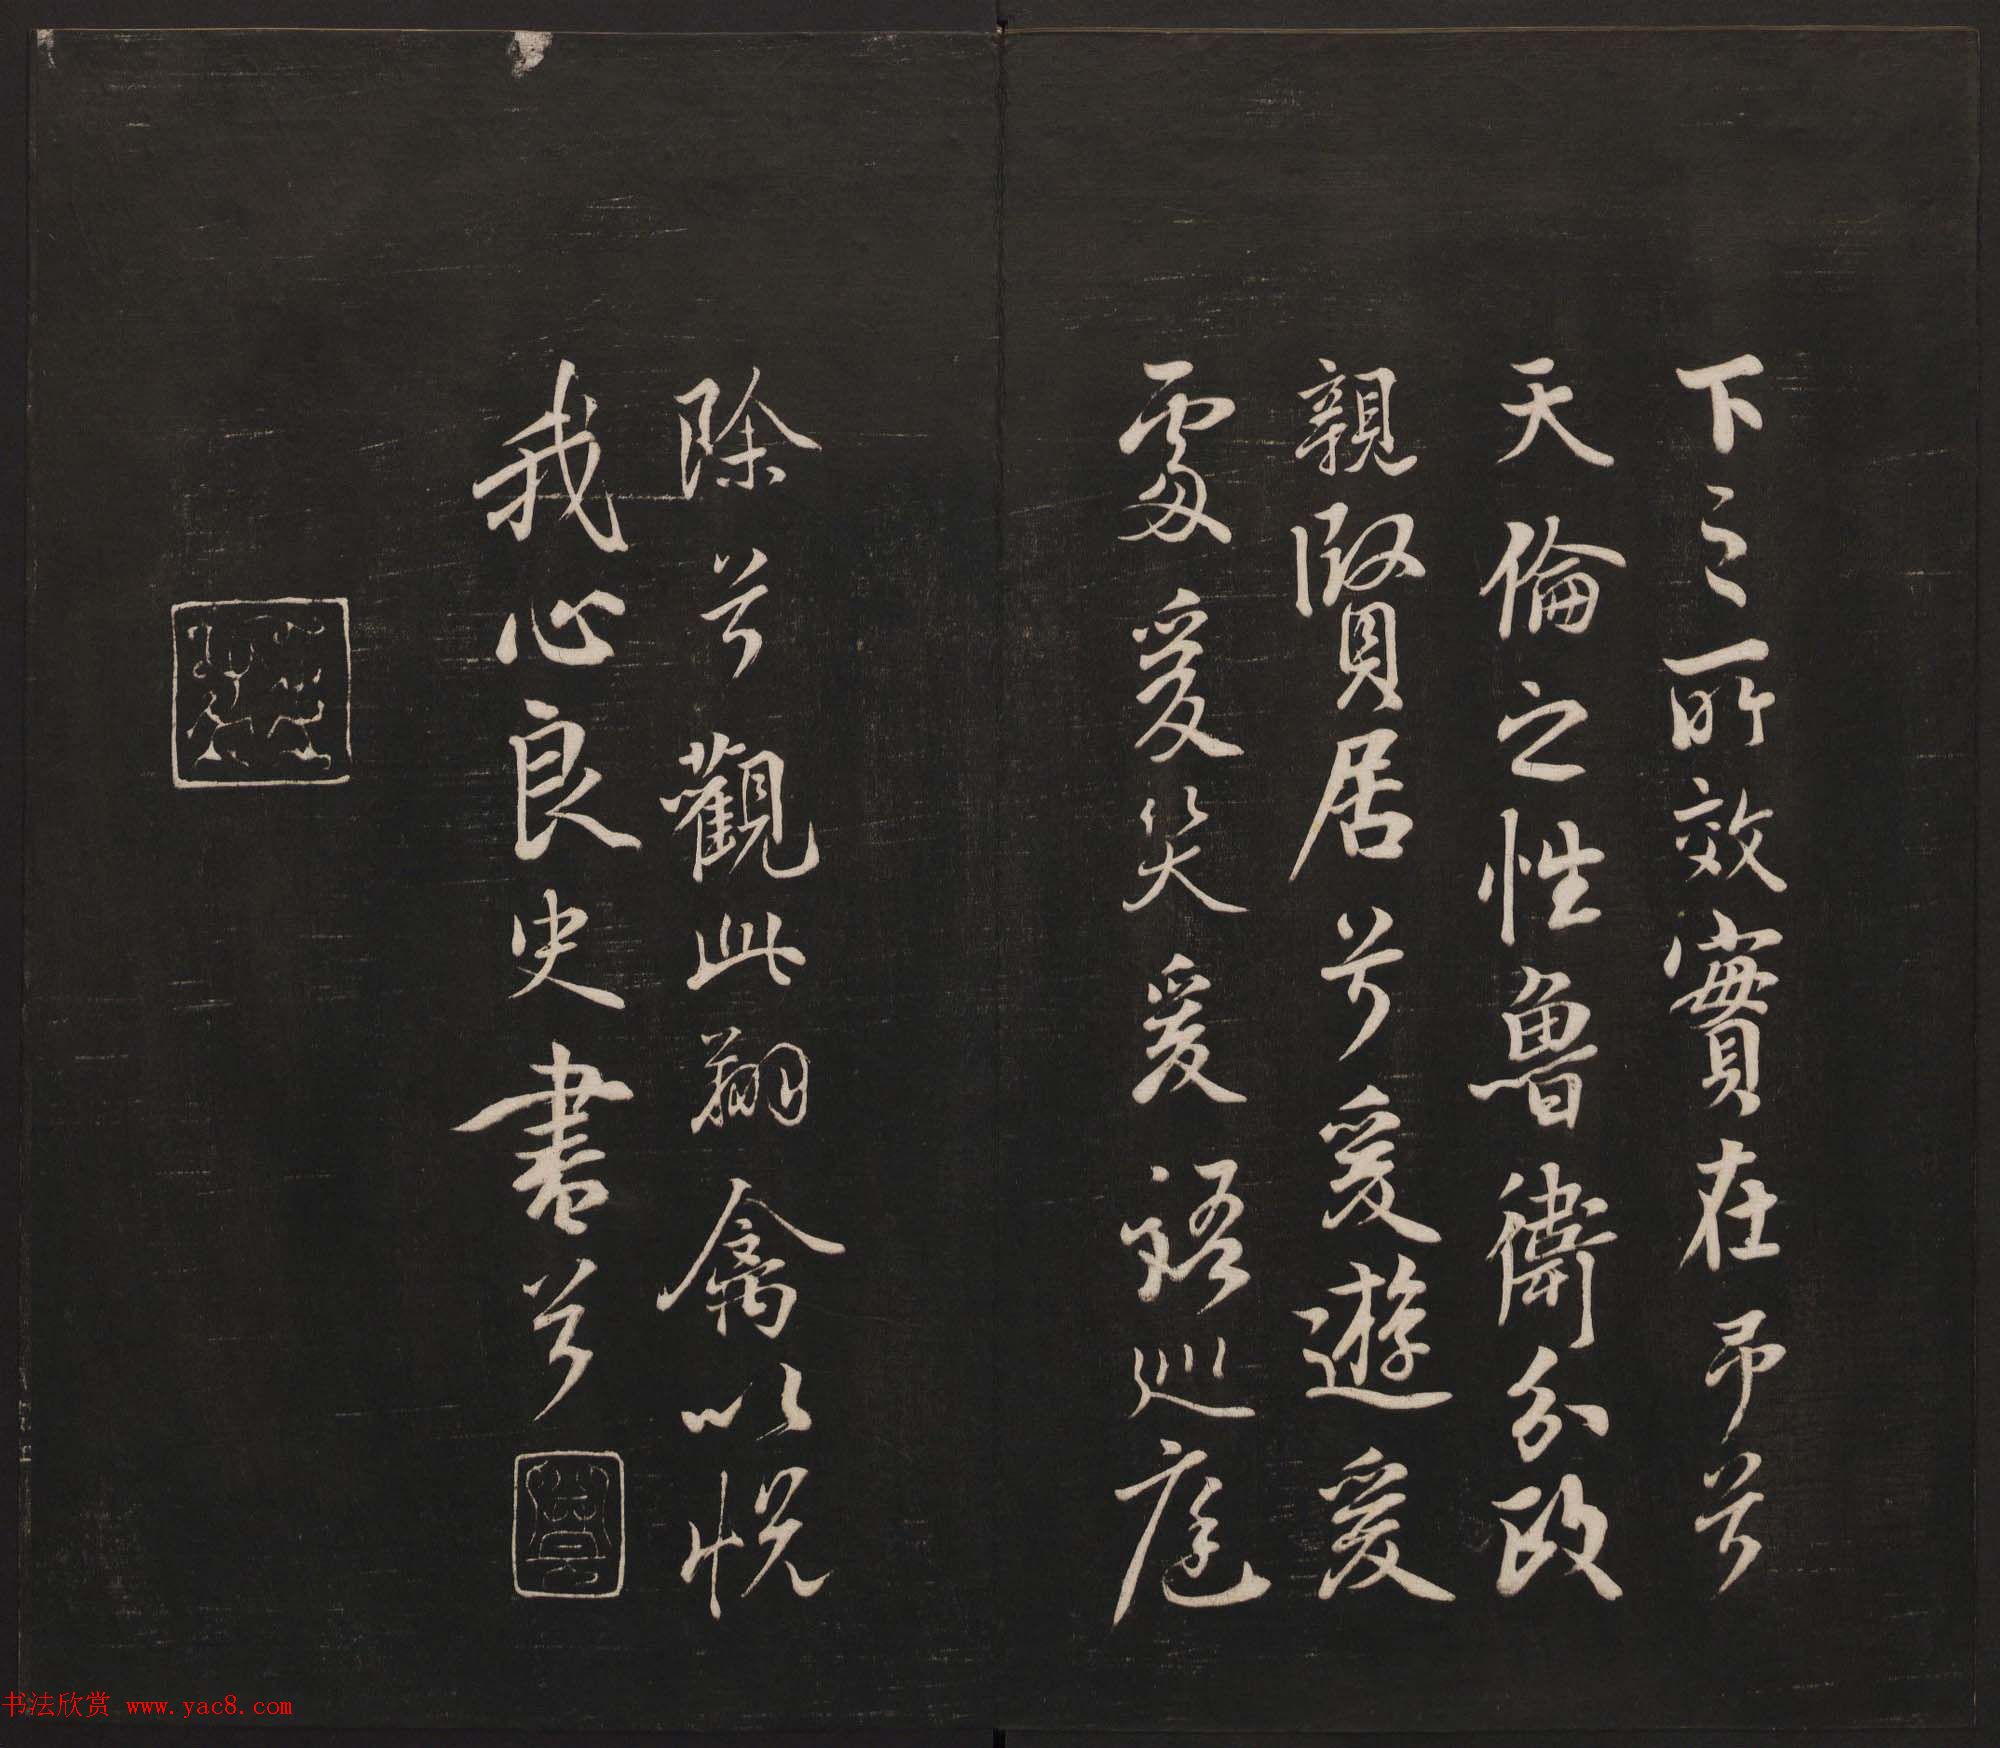 下之所效實在吊兮
天倫之性魯衛分政
親賢居兮爰遊爰
處爰笑爰語巡庭
除兮觀此翔禽以悅
我心良史書兮
书法欣赏 www.yac8.com